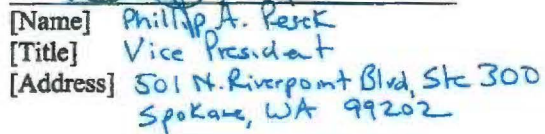 [Name] Phillip A. Pesek
[Title] Vice President
[Address] 501 N. Riverpoint Blvd, Ste 300
Spokane, WA 99202